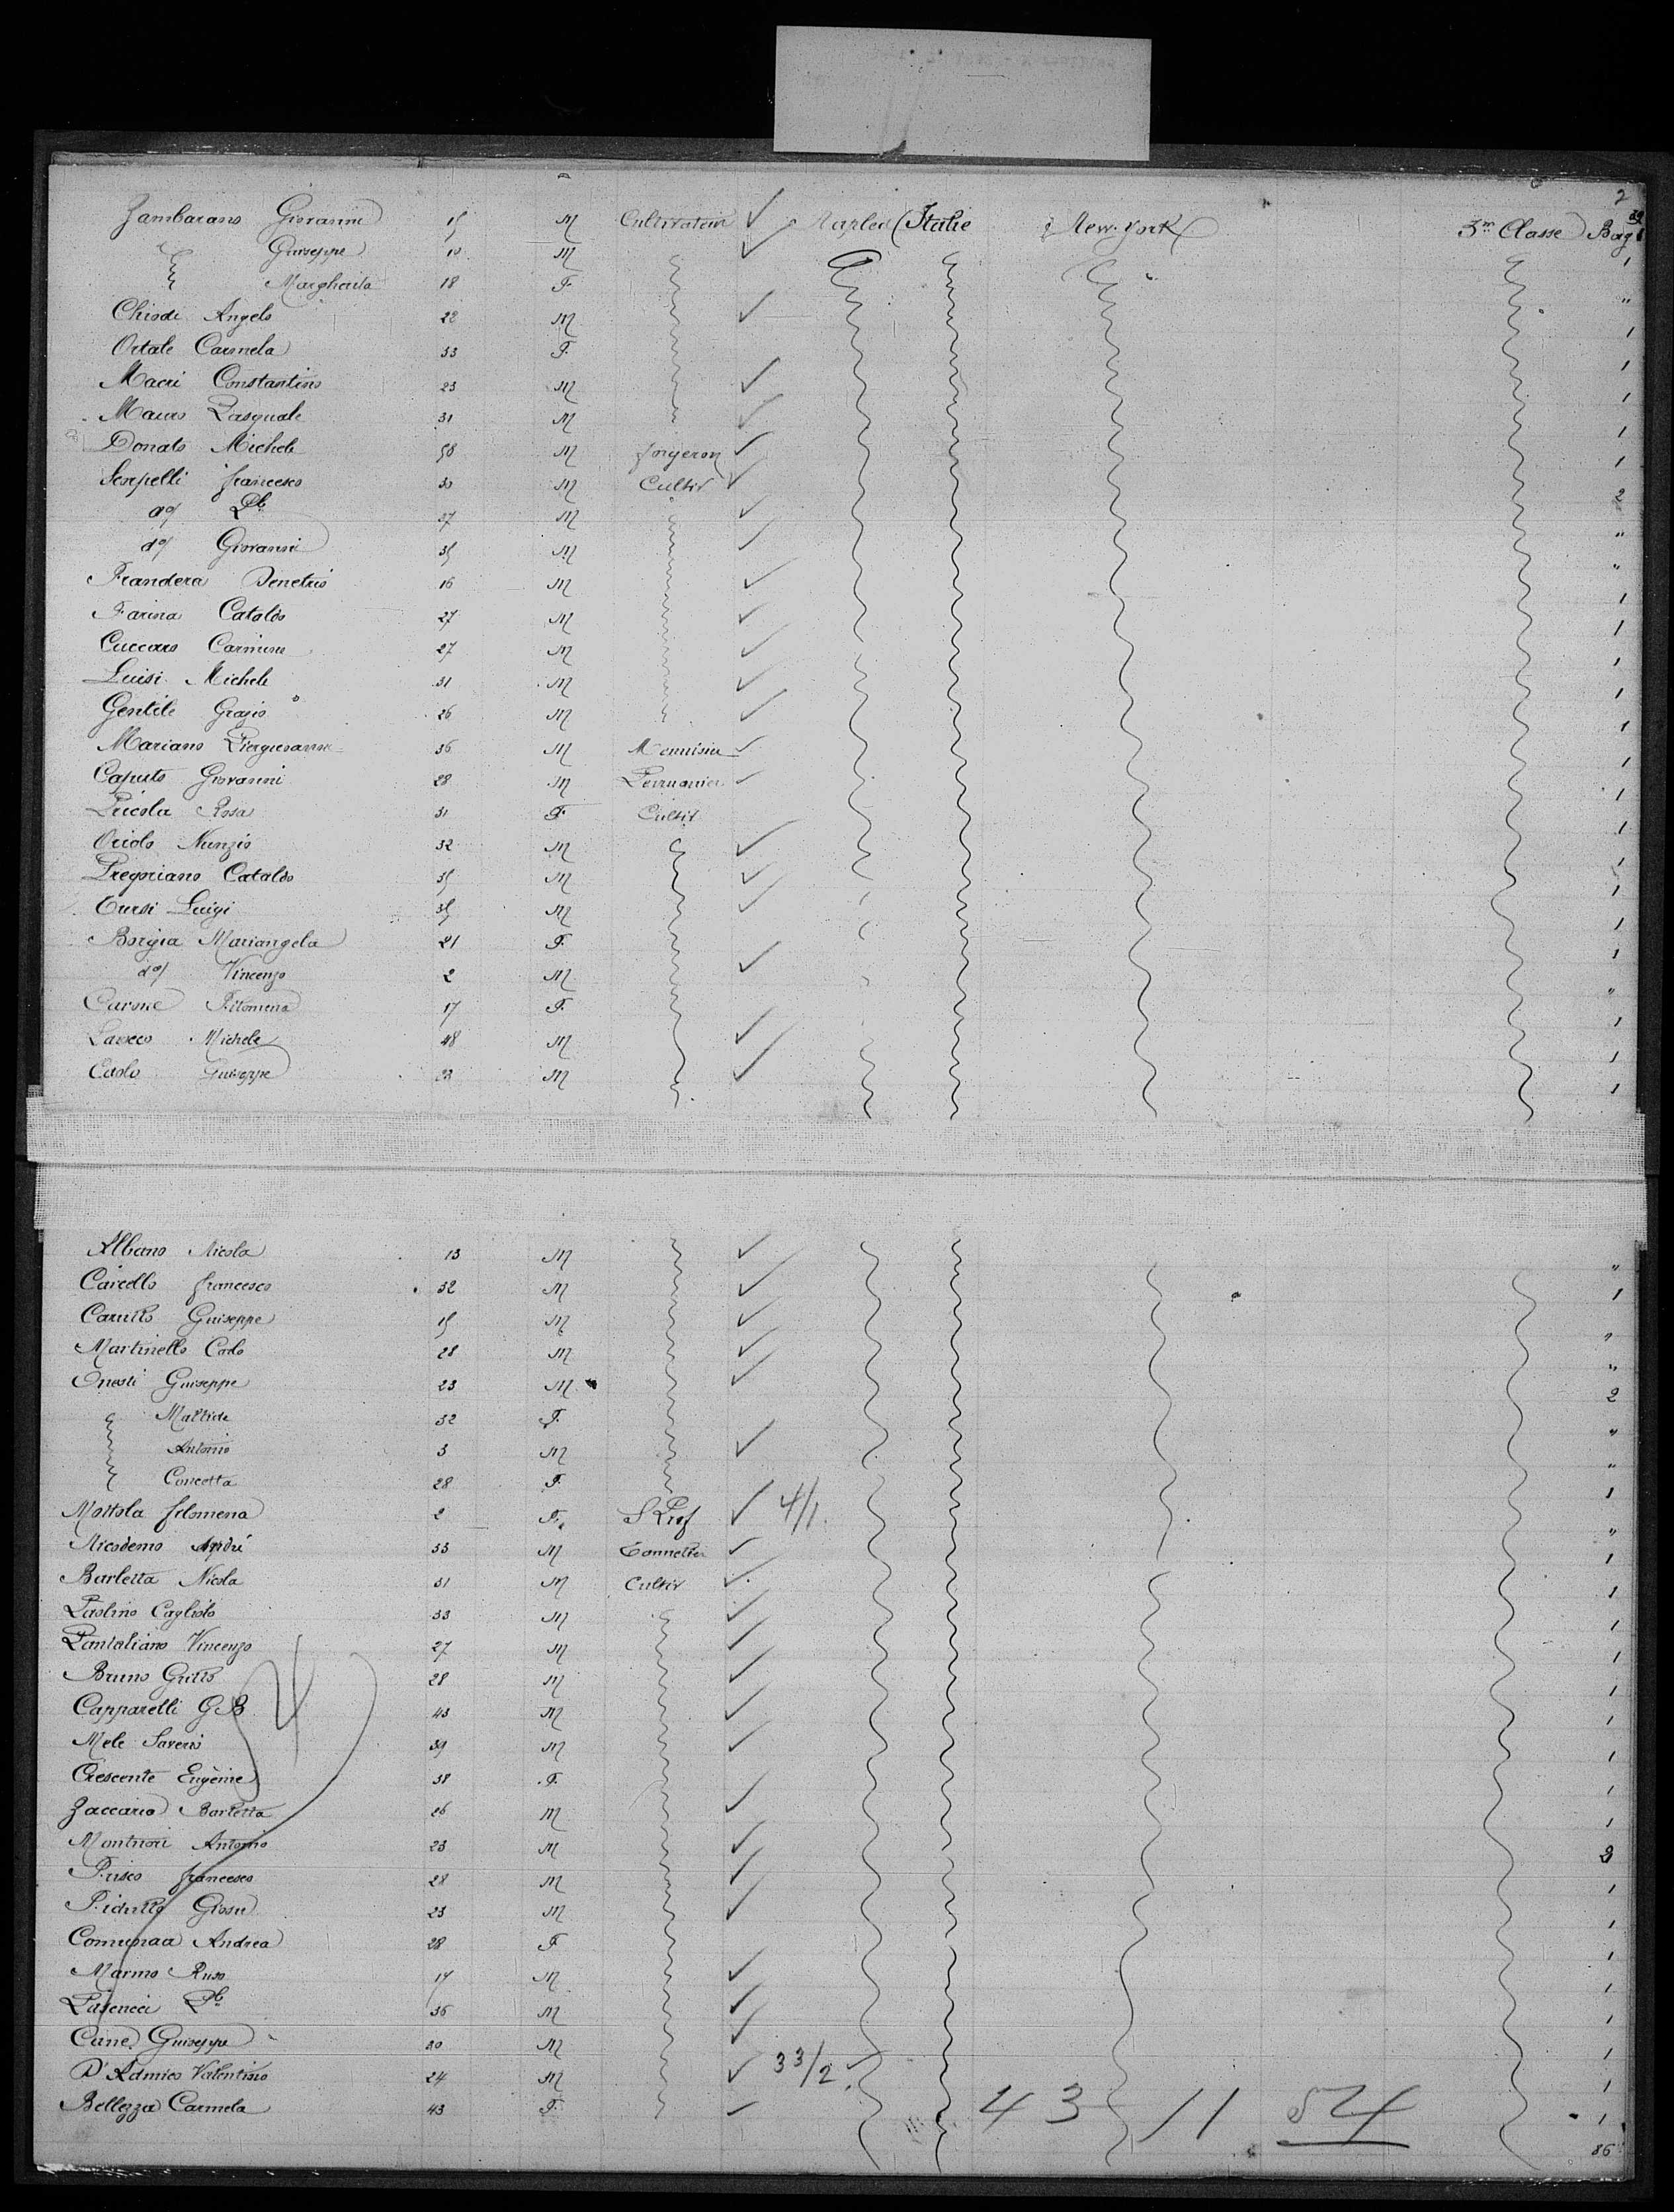 2
Zambarano Giovanni 15 M Cultivateur Naples Italie New-York 3me Classe Bag
Guiseppe 10 M 1
Margherita 18 F "
Chiodi Angelo 22 M 1
Ortale Carmela 33 F. 1
Macri Constantino 23 M 1
Mauro Pasquale 31 M 1
Donato Michele 58 M forgeron 1
Scarpelli francesco 30 M Cultiv 2
do 37 M "
do Giovanni 35 M "
Frandera Demetrio 16 M 1
Farina Cataldo 27 M 1
Cuccaro Carmine 27 M 1
Luisi Michele 31 M 1
Gentile Grazio 26 M 1
Mariano 36 M Menuisier 1
Caputo Giovanni 28 M 1
Pricola Rosa 31 F Cultiv 1
Oriolo Nunzio 32 M 1
Pregoriano Cataldo 35 M 1
Cursi Luigi 35 M 1
Borgia Mariangela 21 F. 1
do Vincenzo 2 M "
Carone Filomena 17 F. 1
Michele 48 M 1
Guiseppe M 1
Albano Nicola 13 M "
Caicello francesco 32 M 1
Carullo Guiseppe 15 M "
Martinello Carlo 28 M "
Onesti Guiseppe 23 M 2
Matilde 32 F. "
Antonio 3 M "
Concetta 28 F. 1
Mottola filomena 2 F. S Prof 4/1 "
Nicodemo André 33 M Tonnelier 1
Barletta Nicola 31 M Cultiv 1
Paolino Cagliolo 33 M 1
Pantaliano Vincenzo 27 M 1
Bruno Grillo 28 M 1
Capparelli G.B. 43 M 1
Mele Saverio 39 M 1
Crescente Eugènie 38 F. 1
Zaccaria Barletta 26 M 1
Montuori Antonio 23 M 2
Frisco francesco 28 M 1
Giosue 23 M 1
Andrea 28 F 1
Marmo 17 M 1
36 M 1
Cane Guiseppe 20 M 1
D'Admico Valentino 24 M 33/2 1
Bellezza Carmela 43 F. 43 11 54 1
86